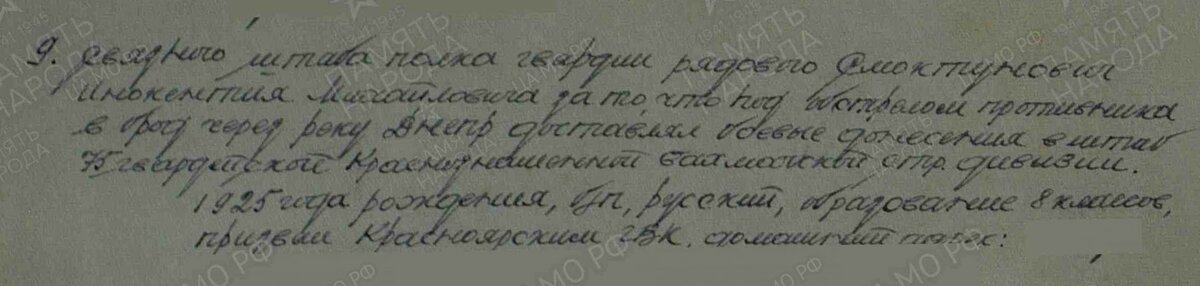 9. Связного штаба полка гвардии рядового Смоктунович
Инокентия Михайловича за то, что под обстрелом противника
в брод через реку Днепр доставлял боевые донесения в штаб
75 гвардейской Краснознаменной Бахмачской стр. дивизии.
1925 года рождения, б/п, русский, образование 8 классов,
призван Красноярским ГВК. домашний адрес: